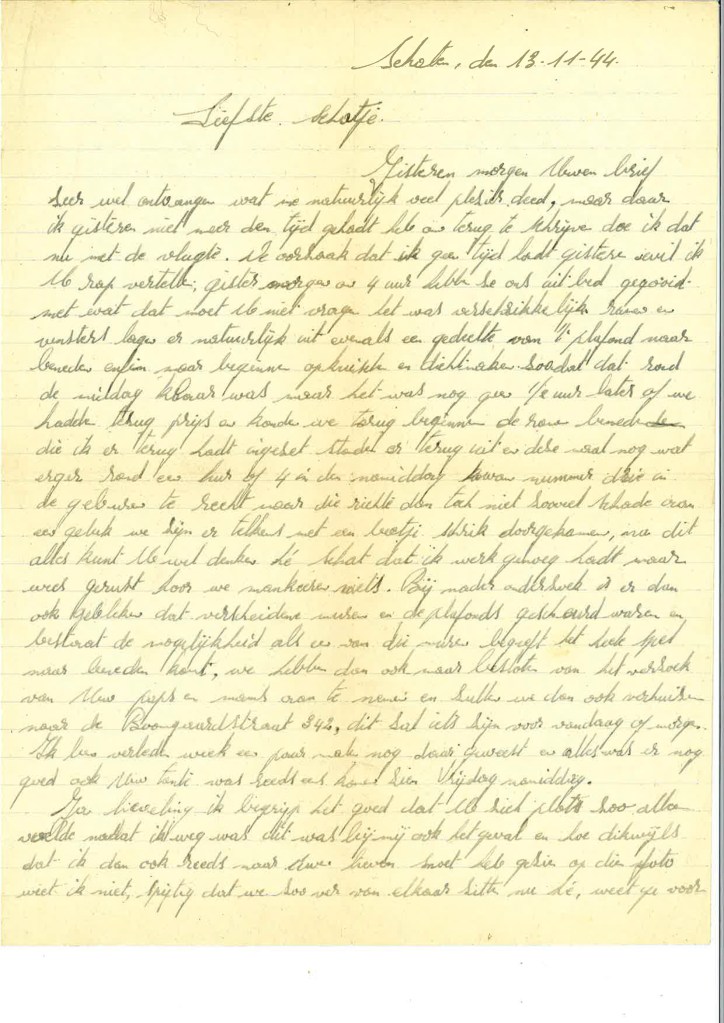 Schoten, den 13-11-44.
Liefste Schatje.
Gisteren morgen Uwen brief
zeer wel ontvangen wat me natuurlijk veel plezier deed, maar daar
ik gisteren niet meer den tijd gehadt heb om terug te schrijve doe ik dat
nu met de vlugte. De oorzaak dat ik geen tijd hadt gistere wil ik
U rap vertelle, gister morgen om 4 uur hebbe ze ons uit bed gegooid
met wat dat moet U niet vrage het was verschrikkelijk rame en
vensters lage er natuurlijk uit evenals een gedeelte van 't plafond naar
benede enfin maar beginne opkuisse en dichtmake zoodat dat rond
de middag klaar was maar het was nog geen 1/2 uur later of we
hadde terug prijs en konde we terug beginne de rame
die ik er terug hadt ingezet stonde er terug uit en deze maal nog wat
erger rond een uur of 4 in den namiddag kwam nummer drie in
de gebure te recht maar die richte dan toch niet zooveel schade aan
een geluk we zijn er telkens met een beetje schrik doorgekomen, nu dit
alles kunt U wel denken hé schat dat ik werk genoeg hadt maar
wees gerust hoor we mankeere niets. Bij nader onderzoek is er dan
ook gebleke dat verscheidene muren en de plafonds gescheurd waren en
bestaat de mogelijkheid als een van die muren begeeft het heele spel
naar benede komt, we hebbe dan ook maar beslote van het verzoek
van Uw paps en mams aan te neme en zulle we dan ook verhuize
naar de Boomgaardstraat 342, dit zal iets zijn voor vandaag of morge.
Ik ben verlede week een paar male nog daar geweest en alles was er nog
goed ook Uw tante was reeds eens kome zien Vrijdag namiddag.
Ja lieveling ik begrijp het goed dat U zich plots zoo allee
voelde nadat ik weg was dit was bij mij ook het geval en hoe dikwijls
dat ik dan ook reeds naar Uwe moet heb gezie op die foto
weet ik niet, spijtig dat we zoo ver van elkaar zitte nu hé, weet ge voor